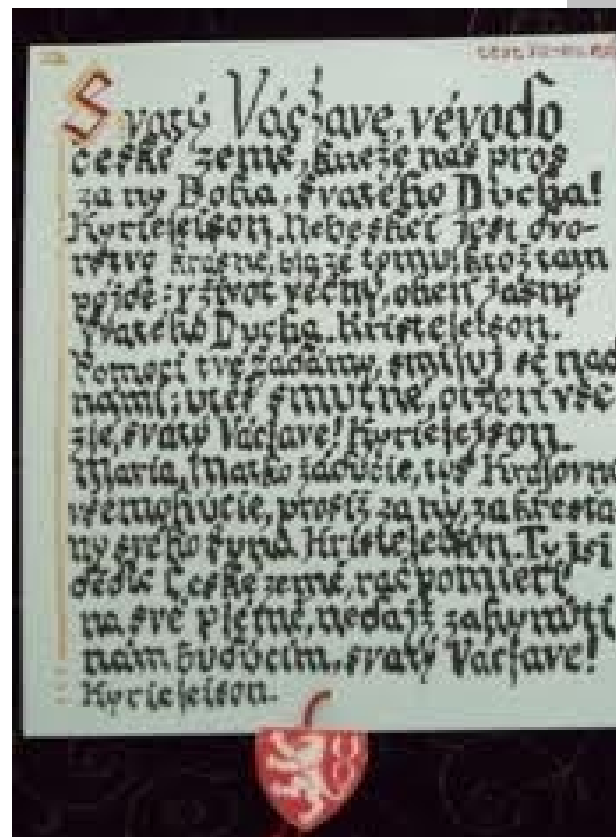 Svatý Václave, vévodo
české země, kněže náš pros
za ny Boha, svatého Ducha!
Kyrieleison. Nebeské jest dvo-
rstvo krásné, blazě tomu, ktož tam
pójde: v život věčný, oheň jasný
svatého Ducha. Kristeleison.
Pomoci tvé žádámy, smiluj sě nad
námi; utěš smutné, otžeň vše
zlé, svatý Václave! Kyrieleison.
Maria, Matko žádúcie, tys Královna
všemohúcie, prosiž za ny, za křesťa
ny svého Syna Kristeleison. Ty jsi
dědic České země, rač pomnieti
na své plémě, nedajž zahynúti
nám budúcím, svatý Václave!
Kyrieleison.